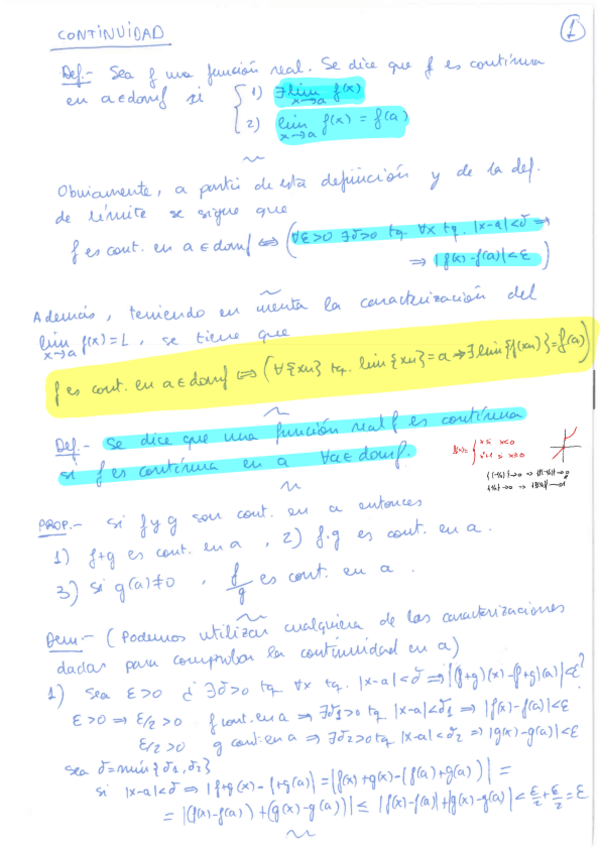 1
CONTINUIDAD
Def.- Sea f una función real. Se dice que f es continua
en a∈domf si { 1) ∃ lim x→a f(x)
2) lim x→a f(x) = f(a)
Obviamente, a partir de esta definición y de la def.
de límite se sigue que
f es cont. en a∈domf ⇔ (∀ε>0 ∃δ>0 tq. ∀x tq. |x-a|<δ ⇒
⇒ |f(x)-f(a)|<ε)
Además, teniendo en menta la caracterización del
lim x→a f(x)=L, se tiene que
f es cont. en a∈domf ⇔ (∀{xn} tq. lim{xn}=a → ∃ lim{f(xn)}=f(a))
Def.- Se dice que una función real f es contínua
si f es contínua en a ∀a∈domf.
PROP.- Si f y g son cont. en a entonces
1) f+g es cont. en a , 2) f·g es cont. en a.
3) Si g(a)≠0 , f/g es cont. en a.
Dem.- (Podemos utilizar cualquiera de las caracterizaciones
dadas para comprobar la continuidad en a)
1) Sea ε>0 ¿∃δ>0 tq ∀x tq. |x-a|<δ ⇒ |(f+g)(x)-(f+g)(a)|<ε?
ε>0 ⇒ ε/2>0 f cont. en a ⇒ ∃δ1>0 tq |x-a|<δ1 ⇒ |f(x)-f(a)|<ε
ε/2>0 g cont. en a ⇒ ∃δ2>0 tq |x-a|<δ2 ⇒ |g(x)-g(a)|<ε
sea δ=min{δ1,δ2}
si |x-a|<δ ⇒ |f+g(x)-f+g(a)| = |f(x)+g(x)-(f(a)+g(a))| =
= |(f(x)-f(a))+(g(x)-g(a))| ≤ |f(x)-f(a)|+|g(x)-g(a)| < ε/2+ε/2=ε